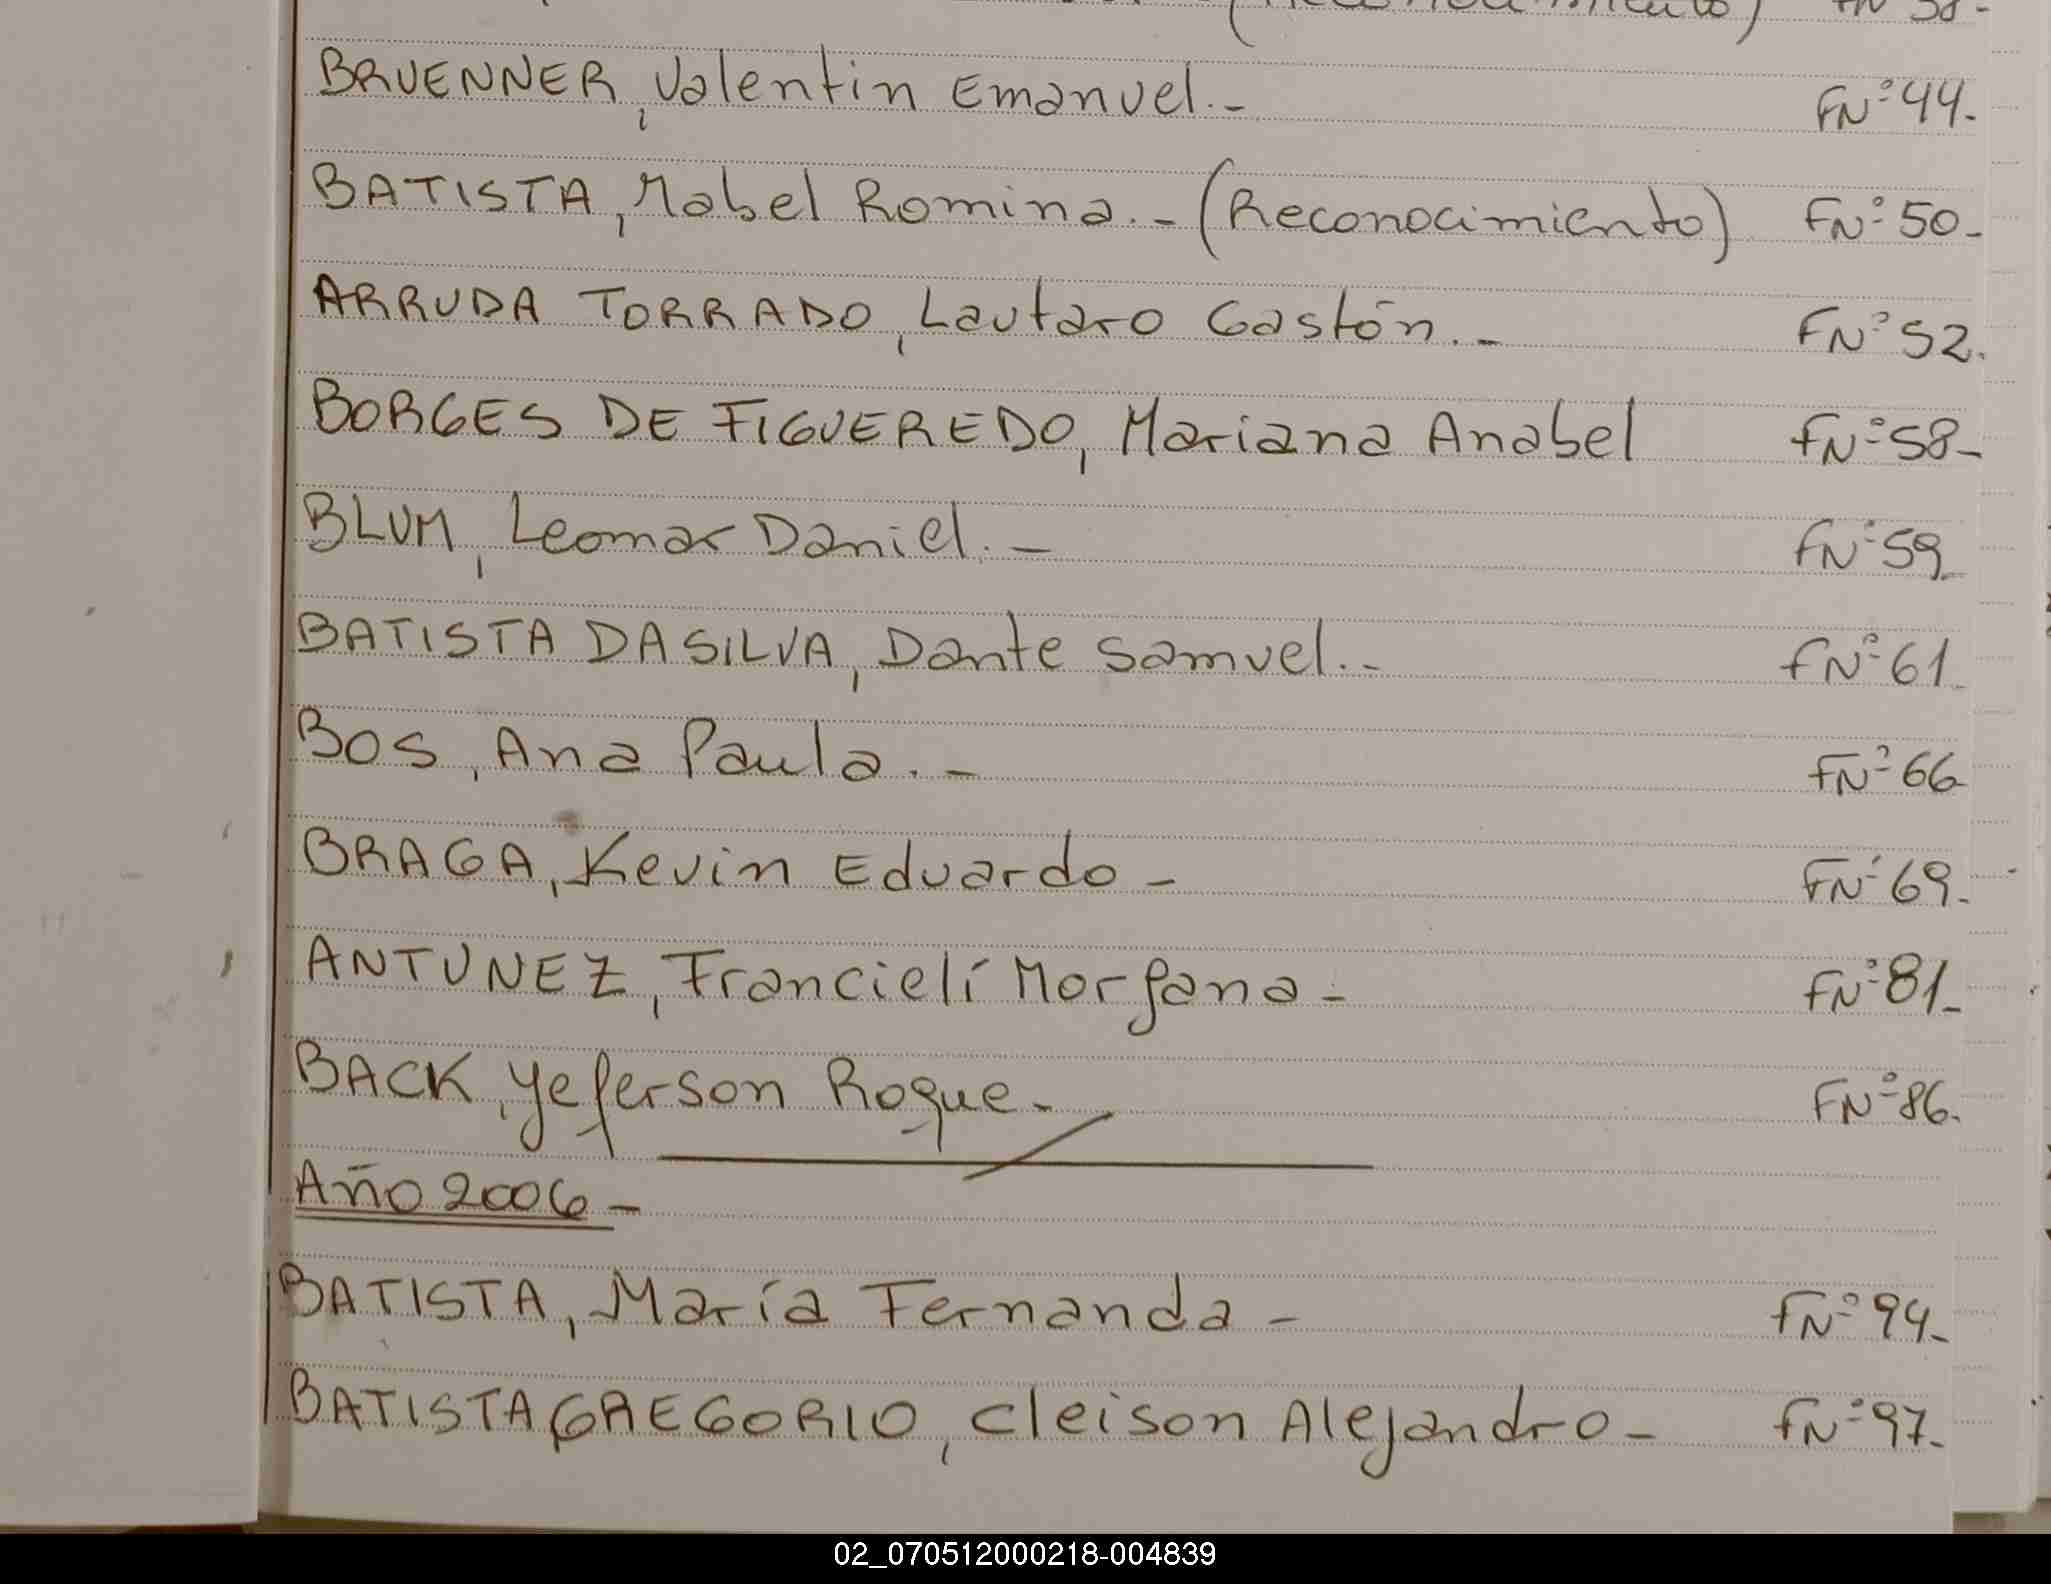 (Reconocimiento) FNº 38-
BRUENNER, Valentin Emanuel.- FNº 44-
BATISTA, Mabel Romina.- (Reconocimiento) FNº 50-
ARRUDA TORRADO, Lautaro Gastón.- FNº 52.
BORGES DE FIGUEREDO, Mariana Anabel FNº 58-
BLUM, Leomar Daniel.- FNº 59-
BATISTA DA SILVA, Dante Samuel.- FNº 61-
BOS, Ana Paula.- FNº 66
BRAGA, Kevin Eduardo- FNº 69-
ANTUNEZ, Francielí Morgana- FNº 81-
BACK, Yeferson Roque- FNº 86.
Año 2006-
BATISTA, María Fernanda- FNº 94-
BATISTA GREGORIO, Cleison Alejandro- FNº 97-
02_070512000218-004839